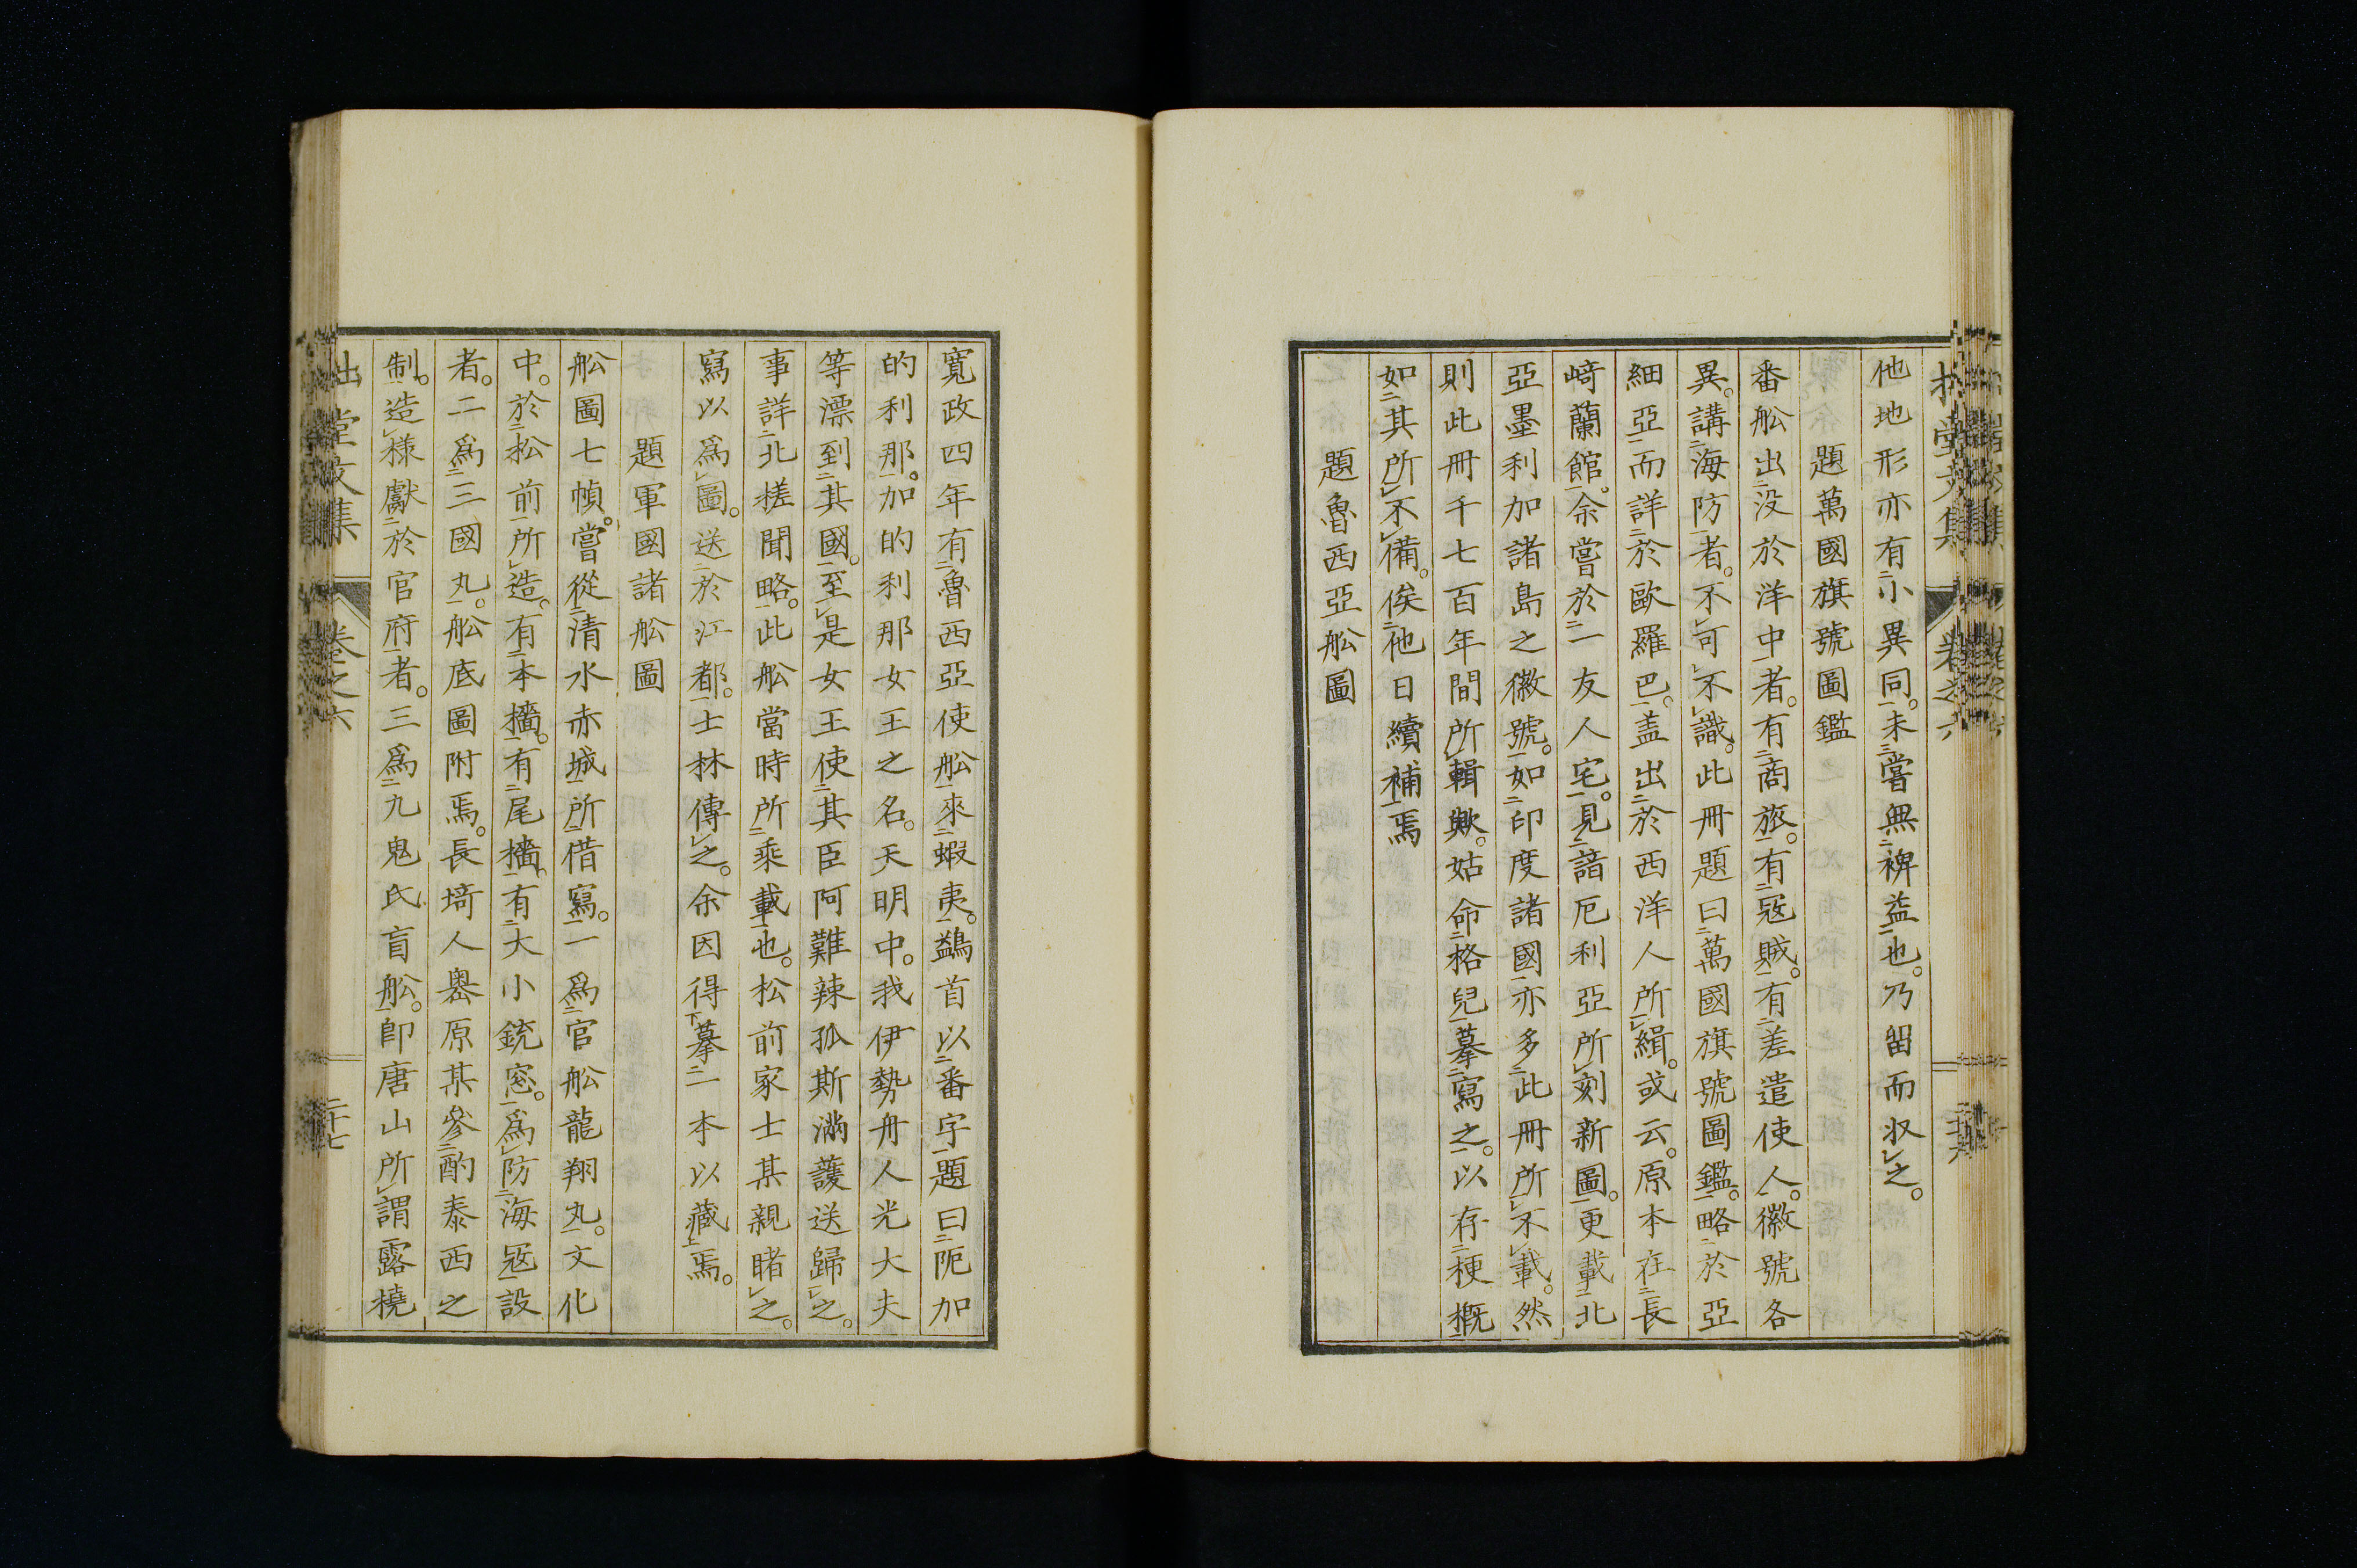 他地形亦有小異同。未嘗無裨益也。乃留而収之。
題萬國旗號圖鑑
番舩出没於洋中者。有商旅。有寇賊。有差遣使人。徽號各
異。講海防者。不可不識。此冊題曰萬國旗號圖鑑。略於亞
細亞而詳於歐羅巴。盖出於西洋人所緝。或云。原本在長
﨑蘭館。余嘗於一友人宅。見諳厄利亞所刻新圖。更載北
亞墨利加諸島之徽號。如印度諸國亦多此冊所不載。然
則此冊千七百年間所輯歟。姑命格兒摹寫之。以存梗概
如其所不備。俟他日續補焉
題魯西亞舩圖
寛政四年有魯西亞使舩來蝦夷。鷁首以番字題曰阨加
的利那。加的利那女王之名。天明中。我伊勢舟人光大夫
等漂到其國。至是女王使其臣阿難辣孤斯滿護送歸之。
事詳北槎聞略。此舩當時所乘載也。松前家士某親睹之。
寫以為圖。送於江都。士林傳之。余因得摹一本以藏焉。
題軍國諸舩圖
舩圖七幀。嘗從清水赤城所借寫。一為官舩龍翔丸。文化
中。於松前所造。有本檣。有尾檣。有大小銃窓。為防海寇設
者。二為三國丸。舩底圖附焉。長埼人嶴原某參酌泰西之
制。造様獻於官府者。三為九鬼氏盲舩。卽唐山所謂露橈
堂文集
卷之六
二十七